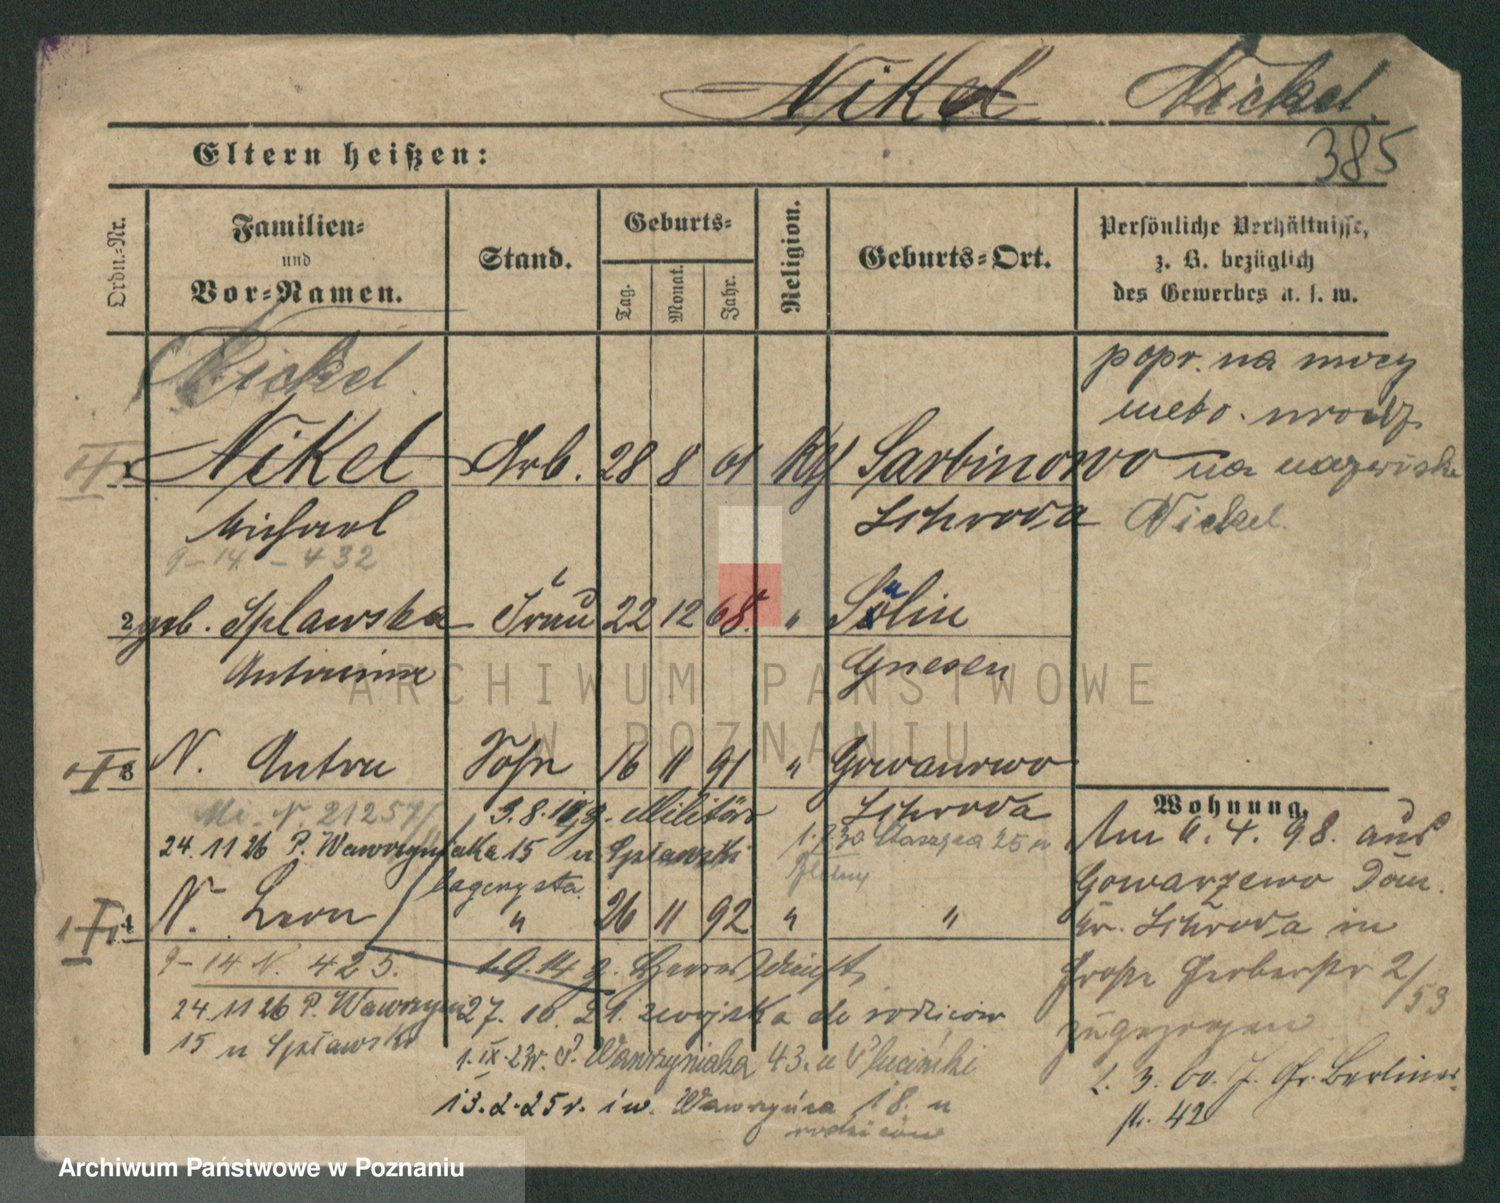 Nikel Nickel.
385
Eltern heißen:
Ordn.-Nr.
Familien-
und
Vor-Namen.
Stand.
Geburts-
Tag.
Monat.
Jahr.
Religion.
Geburts-Ort.
Persönliche Verhältnisse,
z. B. bezüglich
des Gewerbes u. s. w.
Nickel.
popr. na mocy
metr. urodz.
Nikel Arb. 28 8 61 Sarbinowo na nazwisko
Michael Schroda Nickel.
9-14 - 432
2 geb. Splawska Frau 22 12 68. " Sulin
Antonina Gnesen
3 N. Anton Sohn 16 11 91 " Gowarzewo
3.8. z. Militär Schroda
N. 21257
Wohnung.
24.11 26 P. Wawrzyniaka 15 u Spławski
1.7.30 25
Am 6. 4. 98. aus
Gowarzewo Dom.
4 N. Leon " 26 11 92 " "
Kr. Schroda in
9-14 N. 425. 1.9.14 z. Heeresdienst
Große Gerberstr 2/53
24.11 26 P. Wawrzyn 27. 10. 21. z wojska do rodziców
zugezogen
15 u Spławski
1.IX.23r. P. Wawrzyniaka 43. u
2. 3. 00. J. Gr. Berliner
str. 42
13.2.25r. i w. Wawrzyńca 18. u
rodziców
ARCHIWUM PAŃSTWOWE
W POZNANIU
Archiwum Państwowe w Poznaniu